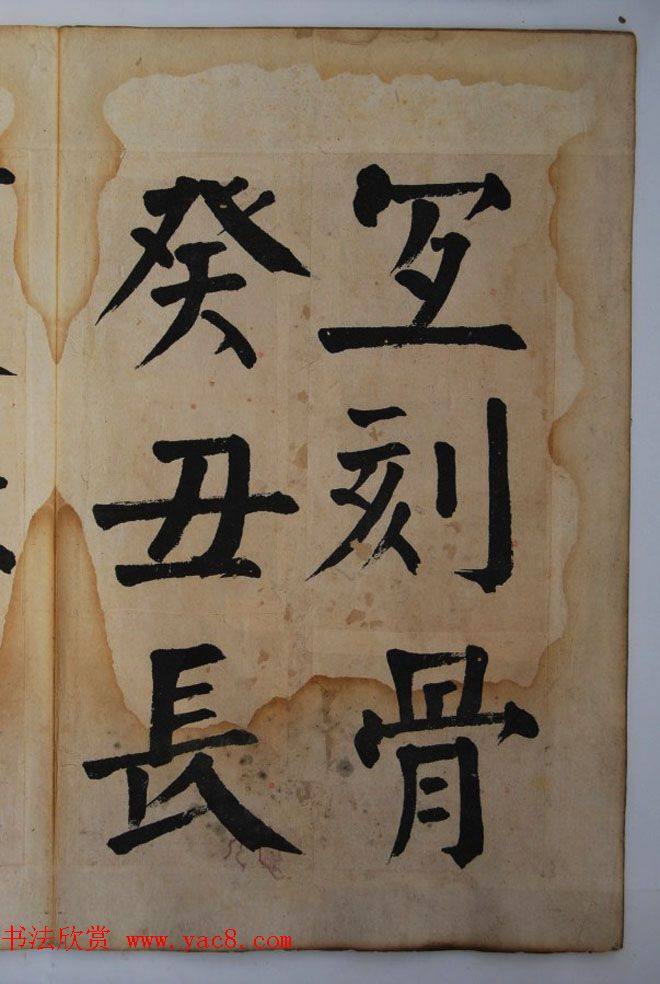 刻骨
癸丑長
书法欣赏 www.yac8.com